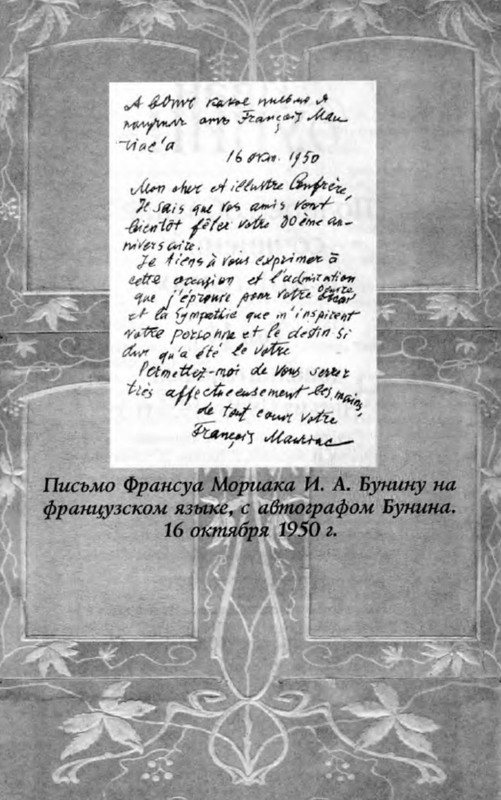 А вотъ какое письмо я
получилъ отъ François Mau
riac'а
16 окт. 1950
Mon cher et illustre Confrère,
Je sais que vos amis vont
bientôt fêter votre 80ème an-
niversaire.
Je tiens à vous exprimer à
cette occasion et l'admiration
que j'éprouve pour votre oeuvre
et la sympathie que m'inspirent
votre personne et le destin si
dur qu'a été le vôtre
Permettez-moi de vous serrer
très affectueusement les mains,
de tout coeur votre
François Mauriac
Письмо Франсуа Мориака И. А. Бунину на
французском языке, с автографом Бунина.
16 октября 1950 г.